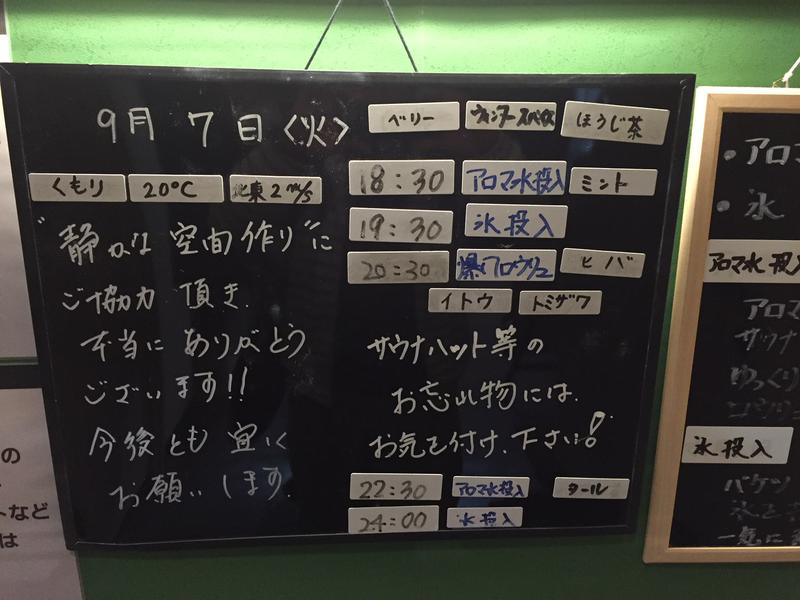 9月 7日 〈火〉
ベリー
ウィンタースペシャル
ほうじ茶
くもり
20℃
北東2m/s
18:30 アロマ水投入 ミント
19:30 氷投入
20:30 爆アロウリュ ヒバ
イトウ トミザワ
"静かな空間作り"に
ご協力頂き、
本当にありがとう
ございます!!
今後とも宜しく
お願いします。
サウナハット等の
お忘れ物には、
お気を付け、下さい!
22:30 アロマ水投入 タール
24:00 氷投入
の
トなど
は
・アロマ
・氷
アロマ水投入
アロマ
サウナ
ゆっくり
ロウリュ
氷投入
バケツ
一気に